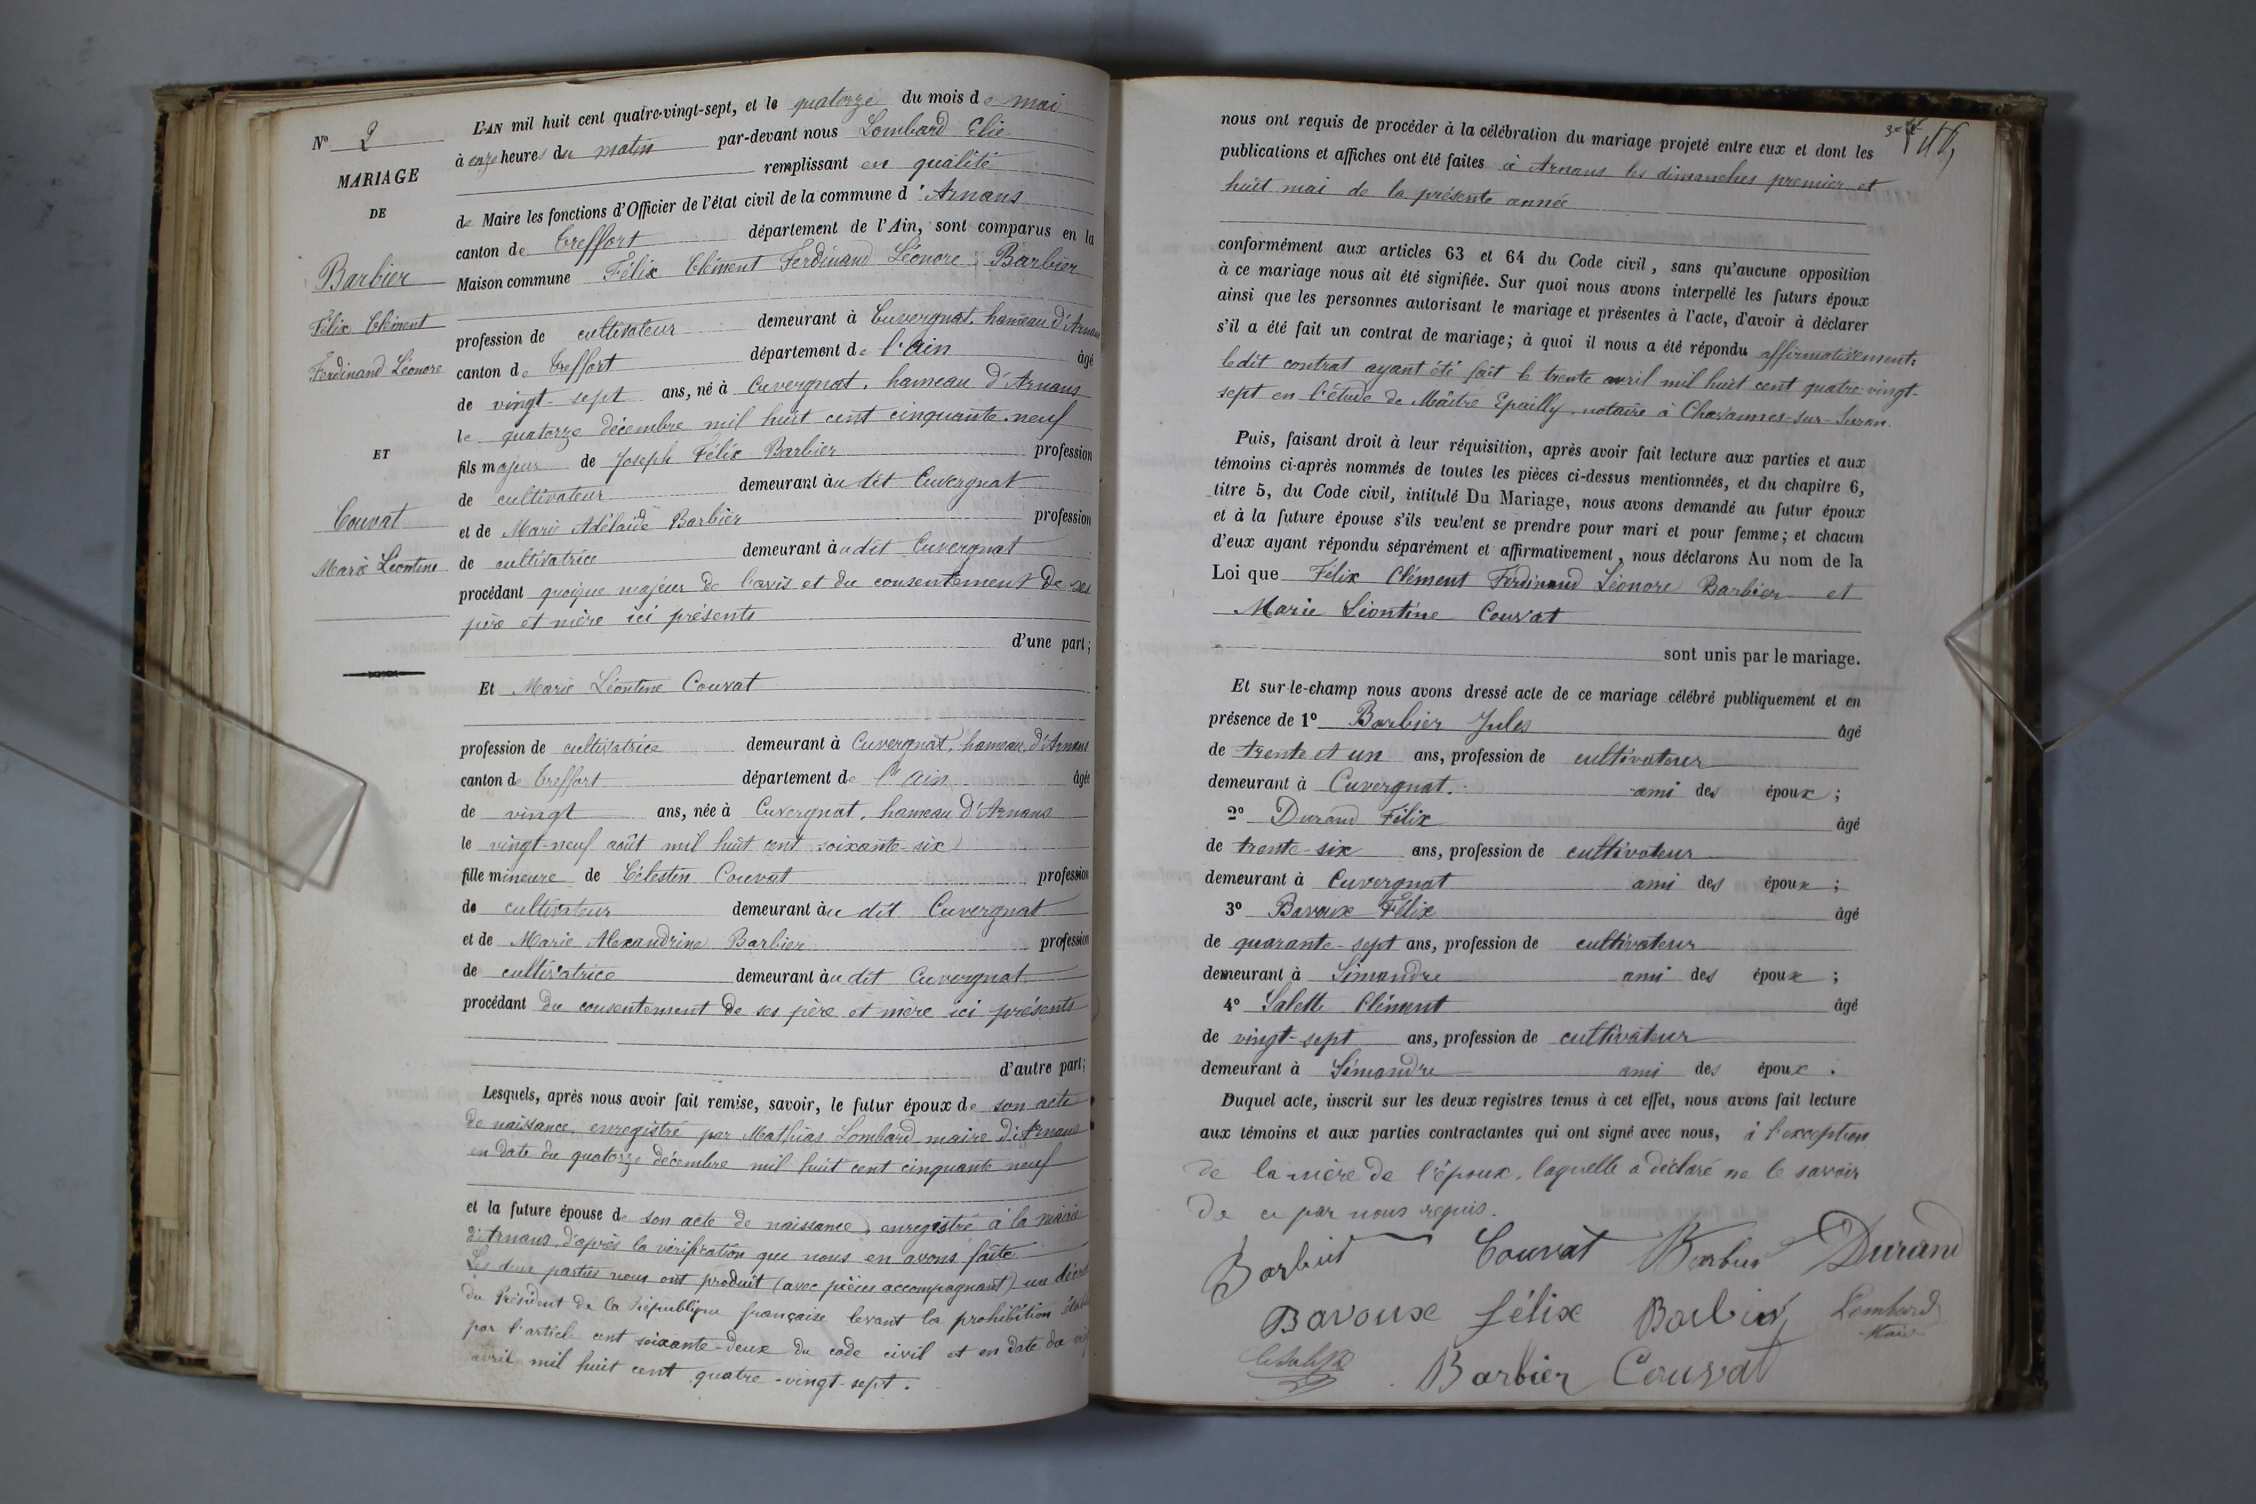 Nº 2
MARIAGE
DE
Barbier
Félix Clément
Ferdinand Léonore
ET
Couvat
Marie Léontine
L'AN mil huit cent quatre-vingt-sept, et le quatorze du mois de mai
à onze heures du matin par-devant nous Lombard Elie
remplissant en qualité
de Maire les fonctions d'Officier de l'état civil de la commune d'Arnans
canton de Treffort département de l'Ain, sont comparus en la
Maison commune Félix Clément Ferdinand Léonore Barbier
profession de cultivateur demeurant à Cuvergnat, hameau d'Arnans
canton de Treffort département de l'Ain âgé
de vingt-sept ans, né à Cuvergnat, hameau d'Arnans
le quatorze décembre mil huit cent cinquante-neuf
fils majeur de Joseph Félix Barbier profession
de cultivateur demeurant au dit Cuvergnat
et de Marie Adélaïde Barbier profession
de cultivatrice demeurant au dit Cuvergnat
procédant quoique majeur de l'avis et du consentement de ses
père et mère ici présents
d'une part;
Et Marie Léontine Couvat
profession de cultivatrice demeurant à Cuvergnat, hameau d'Arnans
canton de Treffort département de l'Ain âgée
de vingt ans, née à Cuvergnat, hameau d'Arnans
le vingt-neuf août mil huit cent soixante-six
fille mineure de Célestin Couvat profession
de cultivateur demeurant au dit Cuvergnat
et de Marie Alexandrine Barbier profession
de cultivatrice demeurant au dit Cuvergnat
procédant du consentement de ses père et mère ici présents
d'autre part;
Lesquels, après nous avoir fait remise, savoir, le futur époux de son acte
de naissance, enregistré par Mathias Lombard maire d'Arnans
en date du quatorze décembre mil huit cent cinquante neuf
et la future épouse de son acte de naissance, enregistré à la mairie
d'Arnans, d'après la vérification que nous en avons faite
Les deux parties nous ont produit (avec pièces accompagnant) un décret
du Président de la République française levant la prohibition
par l'article cent soixante-deux du code civil et en date du
avril mil huit cent quatre-vingt-sept.
nous ont requis de procéder à la célébration du mariage projeté entre eux et dont les
publications et affiches ont été faites à Arnans les dimanches premier et
huit mai de la présente année
conformément aux articles 63 et 64 du Code civil, sans qu'aucune opposition
à ce mariage nous ait été signifiée. Sur quoi nous avons interpellé les futurs époux
ainsi que les personnes autorisant le mariage et présentes à l'acte, d'avoir à déclarer
s'il a été fait un contrat de mariage; à quoi il nous a été répondu affirmativement;
le dit contrat ayant été fait le trente avril mil huit cent quatre-vingt-
sept en l'étude de Maître Epailly, notaire à Chavannes-sur-Suran.
Puis, faisant droit à leur réquisition, après avoir fait lecture aux parties et aux
témoins ci-après nommés de toutes les pièces ci-dessus mentionnées, et du chapitre 6,
titre 5, du Code civil, intitulé Du Mariage, nous avons demandé au futur époux
et à la future épouse s'ils veulent se prendre pour mari et pour femme; et chacun
d'eux ayant répondu séparément et affirmativement, nous déclarons Au nom de la
Loi que Félix Clément Ferdinand Léonore Barbier et
Marie Léontine Couvat
sont unis par le mariage.
Et sur-le-champ nous avons dressé acte de ce mariage célébré publiquement et en
présence de 1º Barbier Jules âgé
de trente et un ans, profession de cultivateur
demeurant à Cuvergnat. ami des époux;
2º Durand Félix âgé
de trente-six ans, profession de cultivateur
demeurant à Cuvergnat ami des époux;
3º Bavoux Félix âgé
de quarante-sept ans, profession de cultivateur
demeurant à Simandre ami des époux;
4º Salette Clément âgé
de vingt-sept ans, profession de cultivateur
demeurant à Simandre ami des époux.
Duquel acte, inscrit sur les deux registres tenus à cet effet, nous avons fait lecture
aux témoins et aux parties contractantes qui ont signé avec nous, à l'exception
de la mère de l'époux, laquelle a déclaré ne le savoir
de ce par nous requis.
Barbier Couvat Barbier Durand
Bavoux félix Barbier Lombard
Maire
Barbier Couvat